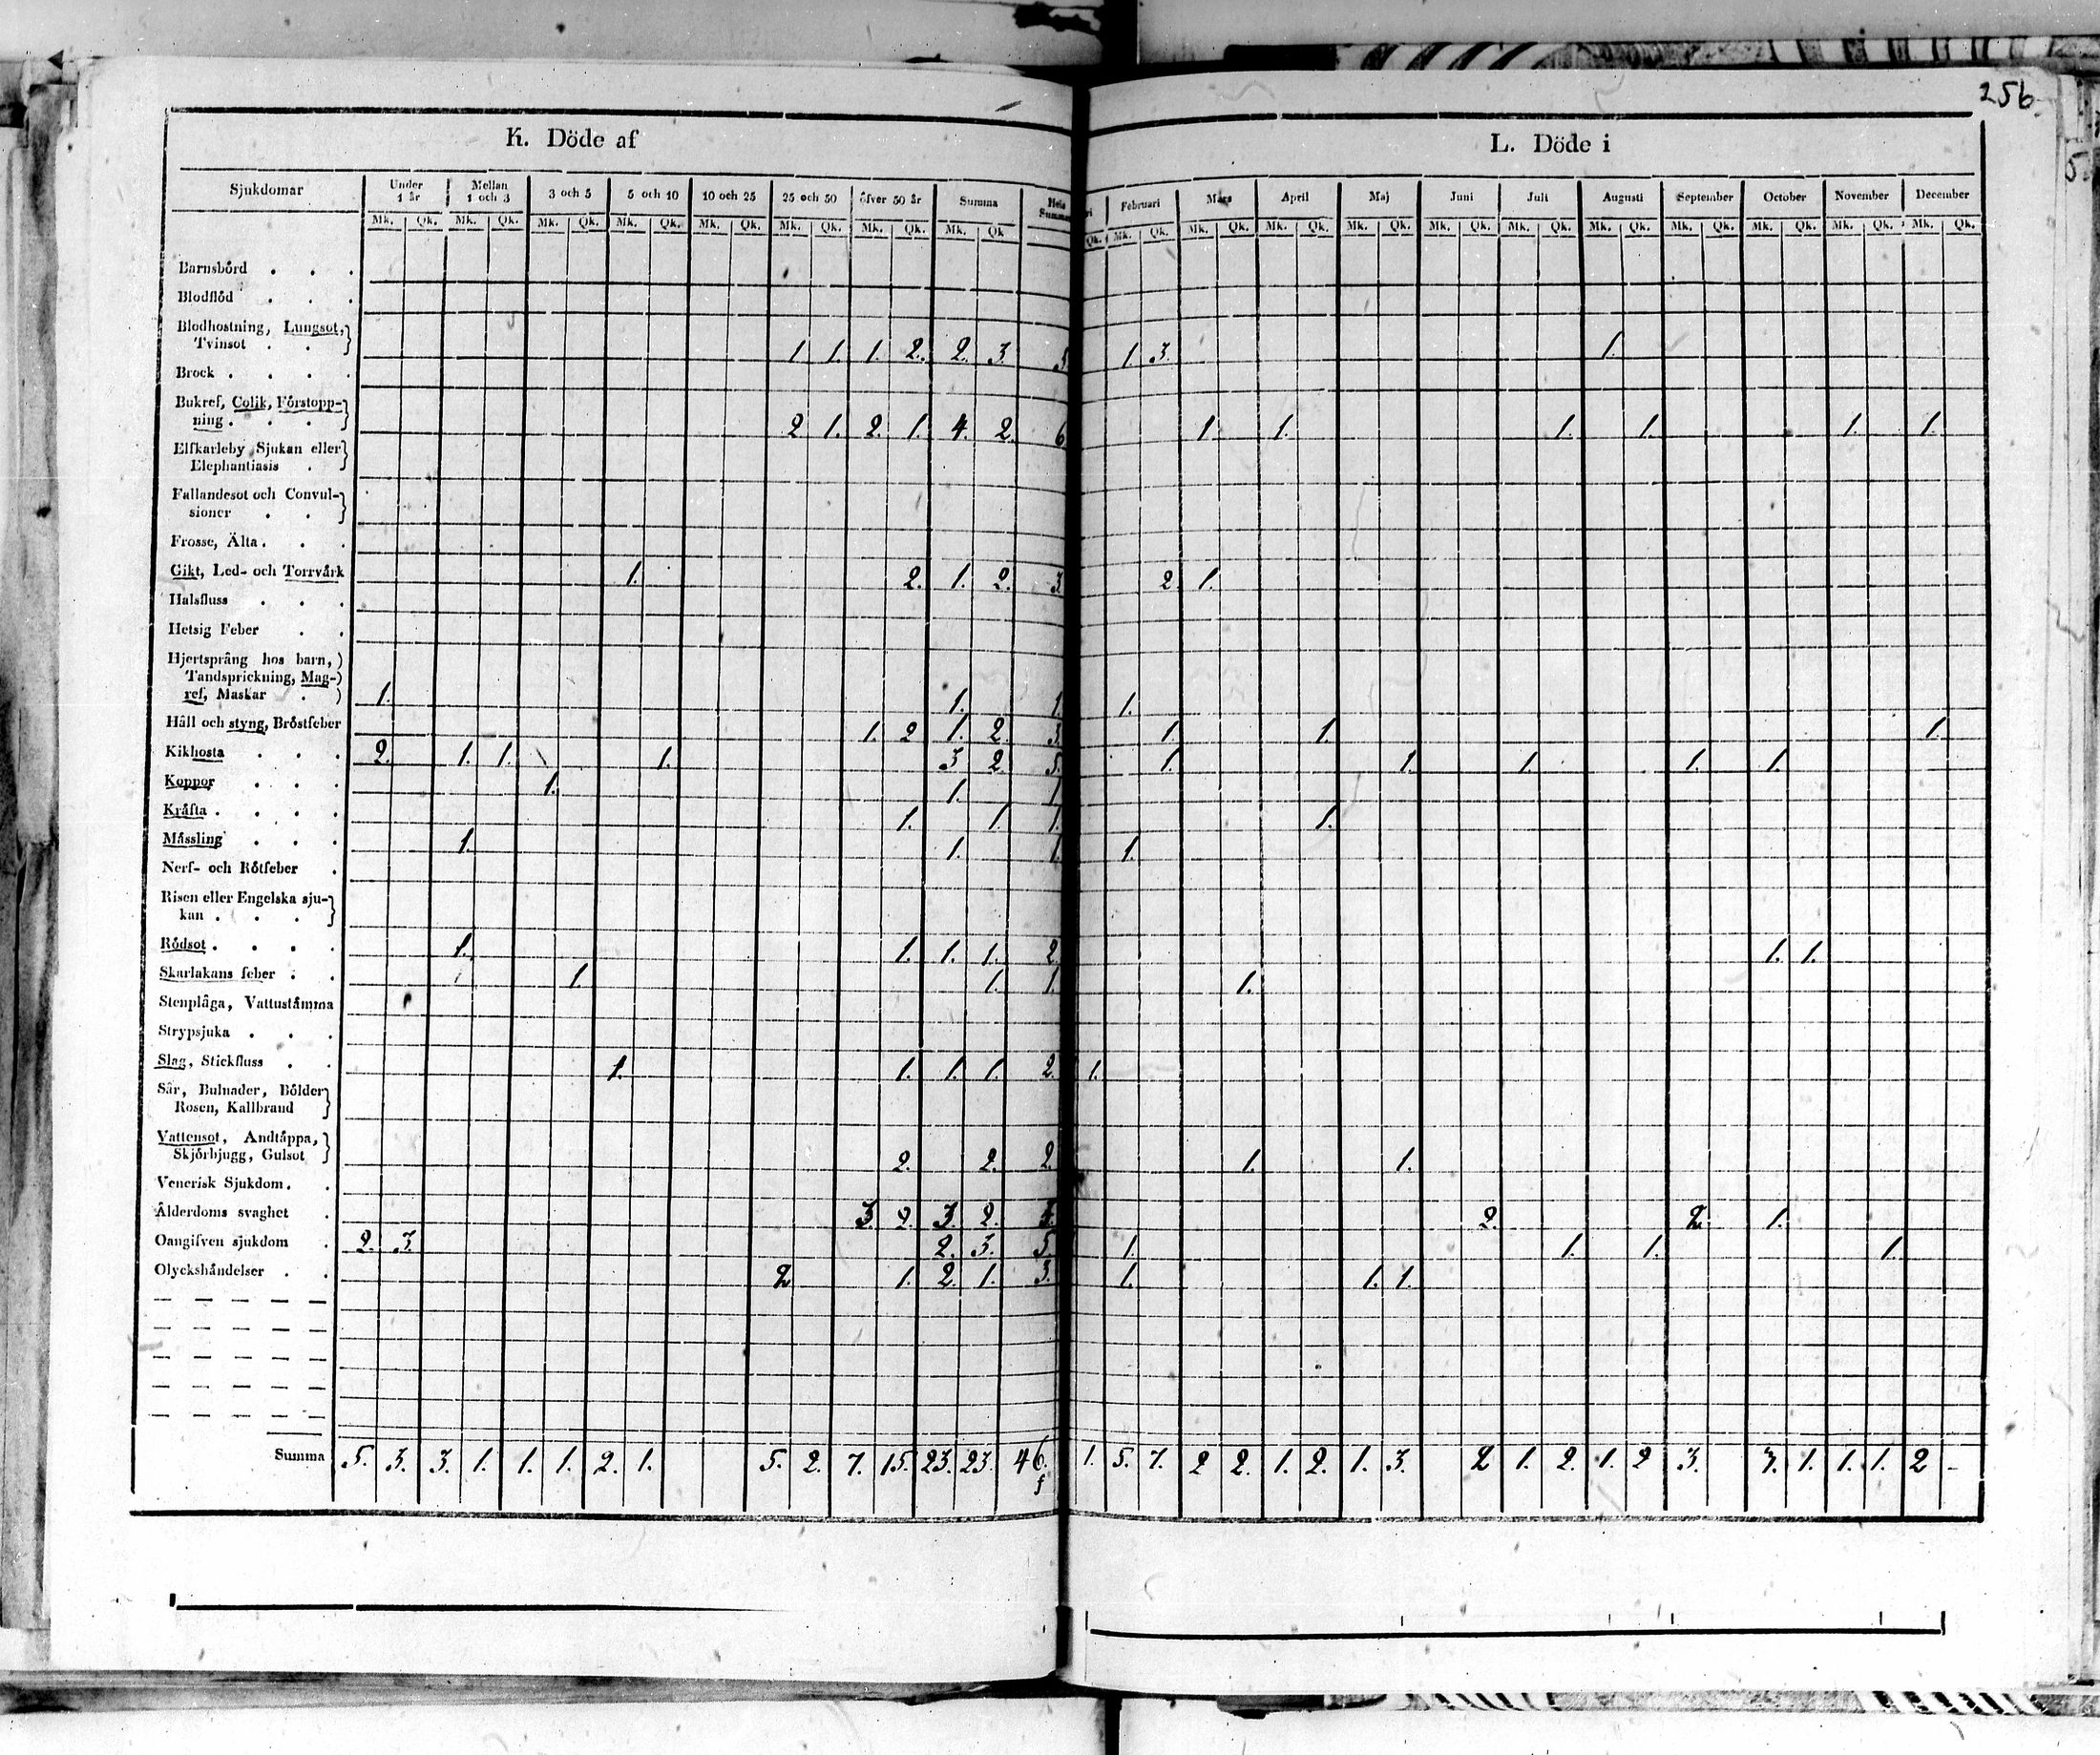 256
K. Döde af
L. Döde i
Sjukdomar Under 1 år Mellan 1 och 3 3 och 5 5 och 10 10 och 25 25 och 50 öfver 50 år Summa Hela Summan
Mk. Qk. Mk. Qk. Mk. Qk. Mk. Qk. Mk. Qk. Mk. Qk. Mk. Qk. Mk. Qk
ri Februari Mars April Maj Juni Juli Augusti September October November December
Qk. Mk. Qk. Mk. Qk. Mk. Qk. Mk. Qk. Mk. Qk. Mk. Qk. Mk. Qk. Mk. Qk. Mk. Qk. Mk. Qk. Mk. Qk.
Barnsbörd . . .
Blodflöd . . .
Blodhostning, Lungsot,
Tvinsot . . 1 1. 1. 2. 2. 3. 5 1. 3. 1.
Brock . . . .
Bukref, Colik, Förstopp-
ning . . . 2 1. 2. 1. 4. 2. 6 1 1. 1. 1. 1. 1.
Elfkarleby Sjukan eller
Elephantiasis .
Fallandesot och Convul-
sioner . .
Frosse, Älta . . .
Gikt, Led- och Torrvärk 1. 2. 1. 2. 3 2 1.
Halsfluss . . .
Hetsig Feber . .
Hjertsprång hos barn,
Tandsprickning, Mag-
ref, Maskar . 1. 1. 1. 1.
Håll och styng, Bröstfeber 1. 2 1. 2. 3. 1. 1. 1.
Kikhosta . . . 2. 1. 1. 1. 3 2. 5. 1. 1. 1. 1. 1.
Koppor . . . 1. 1. 1
Kräfta . . . . 1. 1. 1. 1.
Mässling . . . 1. 1. 1. 1.
Nerf- och Rötfeber .
Risen eller Engelska sju-
kan . . .
Rödsot . . . . 1. 1. 1. 1. 2. 1. 1.
Skarlakans feber . . 1. 1. 1. 1.
Stenplåga, Vattustämma
Strypsjuka . . .
Slag, Stickfluss . . 1. 1. 1. 1. 2. 1.
Sår, Bulnader, Bölder
Rosen, Kallbrand
Vattensot, Andtäppa,
Skjörbjugg, Gulsot 2. 2. 2. 1. 1.
Venerisk Sjukdom . .
Ålderdoms svaghet . 3 2. 3. 2. 5. 2. 2. 1.
Oangifven sjukdom . 2. 3. 2. 3. 5. 1. 1. 1. 1.
Olyckshändelser . . 2 1. 2. 1. 3. 1. 1. 1.
Summa 5. 3. 3. 1. 1. 1. 2. 1. 5. 2. 7. 15. 23. 23. 46. 1. 5. 7. 2 2. 1. 2. 1. 3. 2 1. 2. 1. 2 3. 1. 1. 1. 2 -